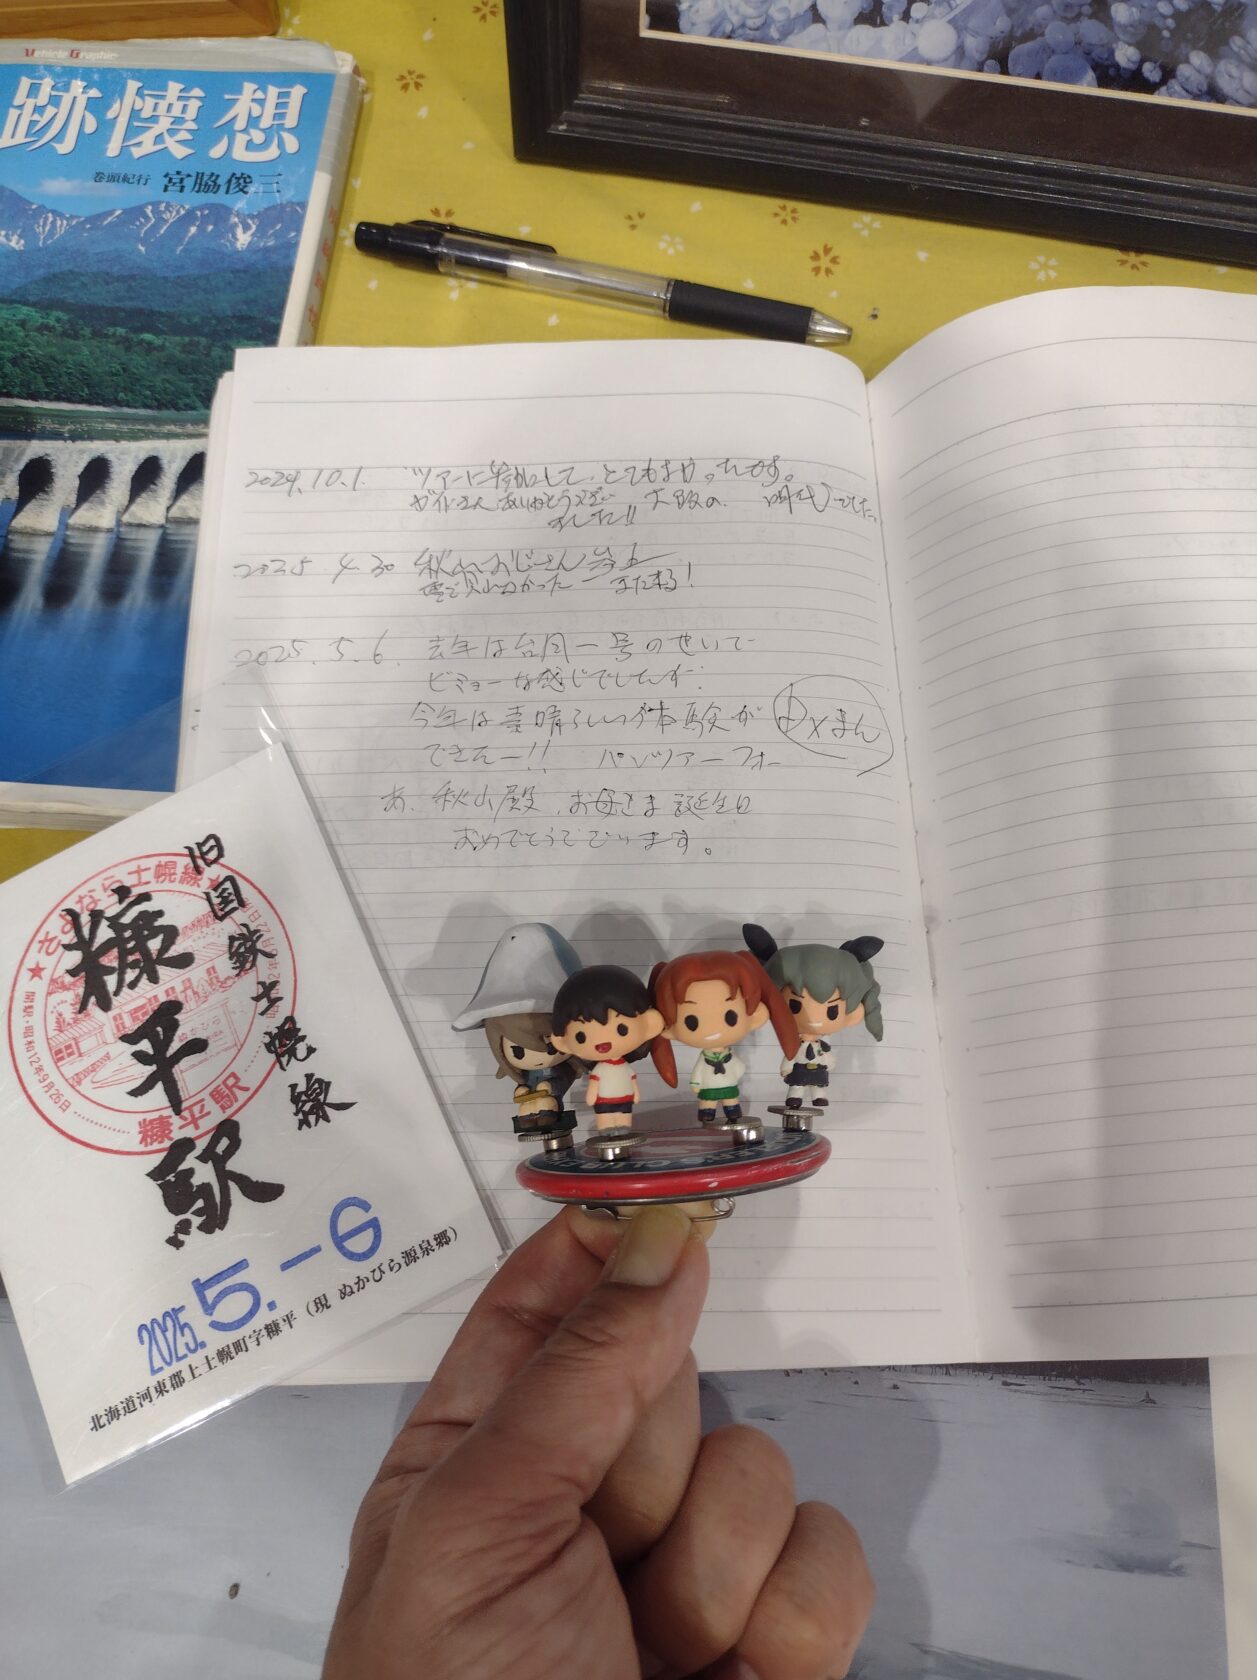 Vehicle Graphic
跡懐想
巻頭紀行 宮脇俊三
2024.10.1. ツアーに参加して、とてもよかったです。
ガイドさんありがとうござい
ました!! 大阪の
でした。
2025 4.30 秋山おじさん参上
雪で また来る!
2025.5.6. 去年は台風一号のせいで
ビミョーな感じでしたが.
今年は素晴らしい体験が
できたー!! パンツァーフォー
まん
あ、秋山殿、お母さま誕生日
おめでとうございます。
旧国鉄士幌線
糠平駅
★さよなら士幌線★
開駅・昭和12年9月26日
糠平駅
2025.5.-6
北海道河東郡上士幌町字糠平(現 ぬかびら源泉郷)